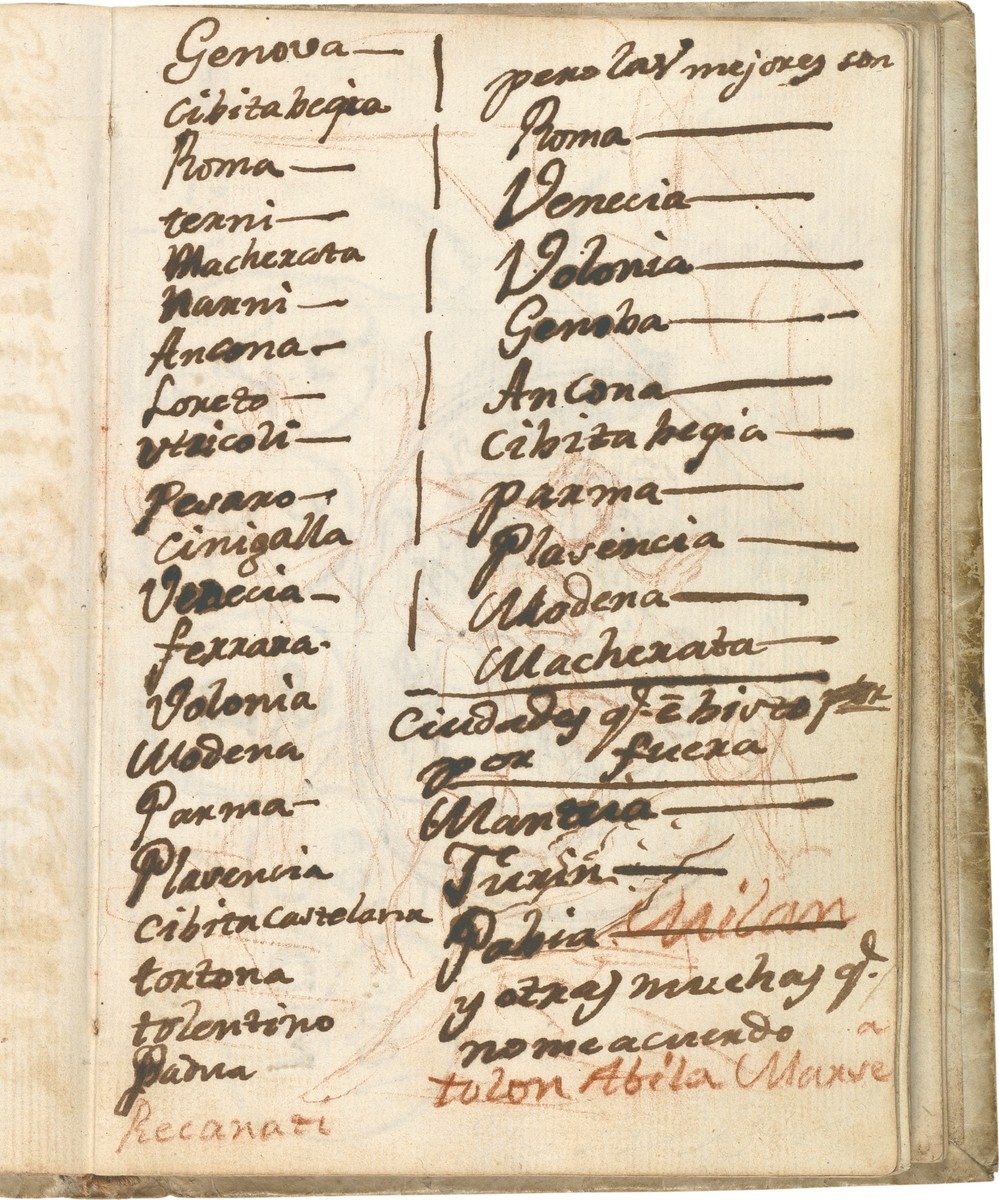 Genova
Cibitabegia
Roma
terni
Macherata
Narni
Ancona
Loreto
Utricoli
Pesaro
Cinigalla
Venecia
ferrara
Volonia
Modena
Parma
Plasencia
Cibita Castelana
tortona
tolentino
Padua
Recanati
pero las mejores son
Roma
Venecia
Volonia
Genoba
Ancona
Cibita begia
Parma
Plasencia
Modena
Macherata
Ciudades q.e é bisto
por fuera
Mantua
Turin
Pabia Milan
y otras muchas q.e
no me acuerdo
a
tolon Abila Marse